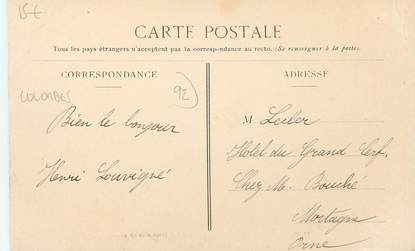 15€
CARTE POSTALE
Tous les pays étrangers n'acceptent pas la correspondance au recto. (Se renseigner à la poste).
CORRESPONDANCE
ADRESSE
COLOMBES
92
Bien le bonjour
Henri Louvigné
M Leder
Hôtel du Grand Cerf.
Chez M. Bouché
Mortagne
Orne